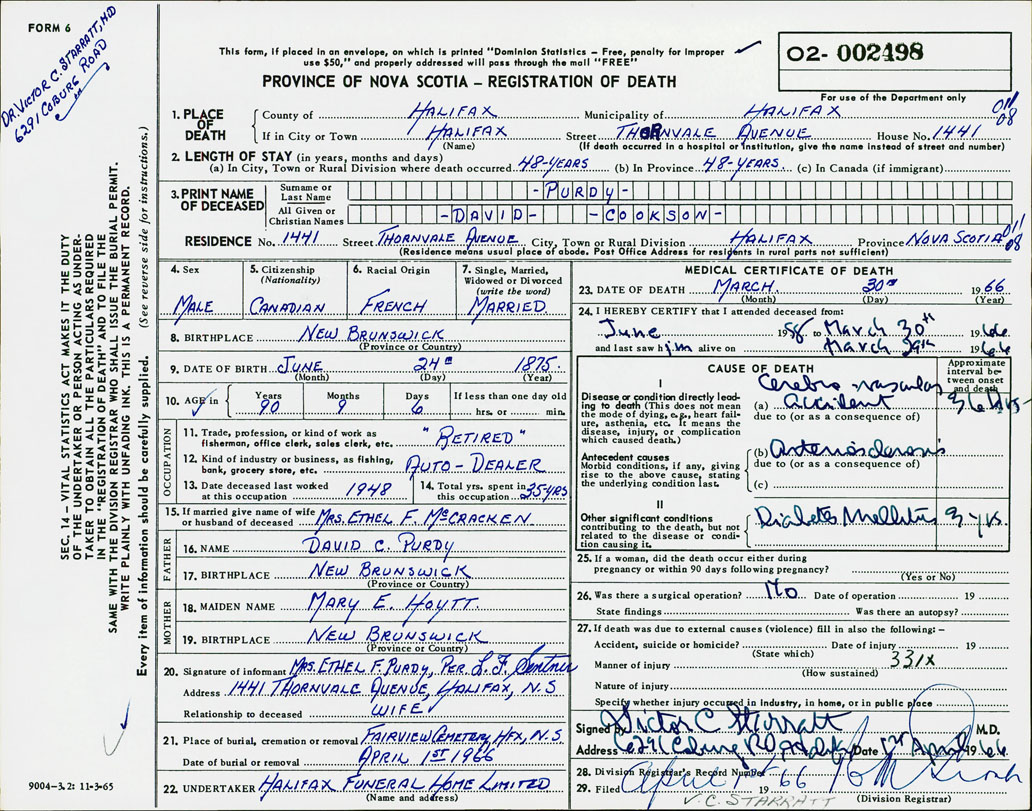 FORM 6
DR. VICTOR C. STARRATT, MD
6291 COBURG ROAD
This form, if placed in an envelope, on which is printed "Dominion Statistics – Free, penalty for improper
use $50," and properly addressed will pass through the mail "FREE"
PROVINCE OF NOVA SCOTIA – REGISTRATION OF DEATH
02- 002498
For use of the Department only
SEC. 14 – VITAL STATISTICS ACT MAKES IT THE DUTY
OF THE UNDERTAKER OR PERSON ACTING AS UNDER-
TAKER TO OBTAIN ALL THE PARTICULARS REQUIRED
IN THE "REGISTRATION OF DEATH" AND TO FILE THE
SAME WITH THE DIVISION REGISTRAR WHO SHALL ISSUE THE BURIAL PERMIT.
WRITE PLAINLY WITH UNFADING INK. THIS IS A PERMANENT RECORD.
Every item of information should be carefully supplied. (See reverse side for instructions.)
1. PLACE OF DEATH
County of HALIFAX Municipality of HALIFAX 011/08
If in City or Town HALIFAX Street THORNVALE AVENUE House No. 1441
(Name) (If death occurred in a hospital or institution, give the name instead of street and number)
2. LENGTH OF STAY (in years, months and days)
(a) In City, Town or Rural Division where death occurred 48-YEARS (b) In Province 48-YEARS. (c) In Canada (if immigrant)
3. PRINT NAME OF DECEASED
Surname or Last Name -PURDY-
All Given or Christian Names -DAVID- -COOKSON-
RESIDENCE No. 1441 Street THORNVALE AVENUE City, Town or Rural Division HALIFAX Province NOVA SCOTIA 011/08
(Residence means usual place of abode. Post Office Address for residents in rural parts not sufficient)
4. Sex MALE
5. Citizenship (Nationality) CANADIAN
6. Racial Origin FRENCH
7. Single, Married, Widowed or Divorced (write the word) MARRIED.
8. BIRTHPLACE NEW BRUNSWICK
(Province or Country)
9. DATE OF BIRTH JUNE 24TH 1875
(Month) (Day) (Year)
10. AGE in Years 90 Months 9 Days 6 If less than one day old hrs. or min.
OCCUPATION
11. Trade, profession, or kind of work as fisherman, office clerk, sales clerk, etc. "RETIRED"
12. Kind of industry or business, as fishing, bank, grocery store, etc. AUTO-DEALER
13. Date deceased last worked at this occupation 1948
14. Total yrs. spent in this occupation 35 YRS
15. If married give name of wife or husband of deceased MRS. ETHEL F. MCCRACKEN
FATHER
16. NAME DAVID C. PURDY
17. BIRTHPLACE NEW BRUNSWICK
(Province or Country)
MOTHER
18. MAIDEN NAME MARY E. HOYTT.
19. BIRTHPLACE NEW BRUNSWICK
(Province or Country)
20. Signature of informant MRS. ETHEL F. PURDY, PER L. F.
Address 1441 THORNVALE AVENUE, HALIFAX, N.S
Relationship to deceased WIFE
21. Place of burial, cremation or removal FAIRVIEW CEMETERY HFX, N.S
Date of burial or removal APRIL 1ST 1966
22. UNDERTAKER HALIFAX FUNERAL HOME LIMITED
(Name and address)
9004-3.2: 11-3-65
MEDICAL CERTIFICATE OF DEATH
23. DATE OF DEATH MARCH. 30TH 1966
(Month) (Day) (Year)
24. I HEREBY CERTIFY that I attended deceased from:
June 1958 to March 30th 1966
and last saw him alive on March 1966
CAUSE OF DEATH
Approximate interval between onset and death
I
Disease or condition directly leading to death (This does not mean the mode of dying, e.g., heart failure, asthenia, etc. It means the disease, injury, or complication which caused death.)
(a) Cerebro vascular accident 36 hrs
due to (or as a consequence of)
Antecedent causes
Morbid conditions, if any, giving rise to the above cause, stating the underlying condition last.
(b) Arteriosclerosis
due to (or as a consequence of)
(c)
II
Other significant conditions contributing to the death, but not related to the disease or condition causing it.
Diabetes Mellitus 3 yrs.
25. If a woman, did the death occur either during
pregnancy or within 90 days following pregnancy?
(Yes or No)
26. Was there a surgical operation? No Date of operation 19
State findings Was there an autopsy?
27. If death was due to external causes (violence) fill in also the following: –
Accident, suicide or homicide? Date of injury 19
(State which)
Manner of injury 331X
(How sustained)
Nature of injury
Specify whether injury occurred in Industry, in home, or in public place
Signed by Victor C. Starratt M.D.
Address 6291 Coburg Rd Date 1st April 1966
28. Division Registrar's Record Number
29. Filed April 1 1966
(Division Registrar)
V.C. STARRATT